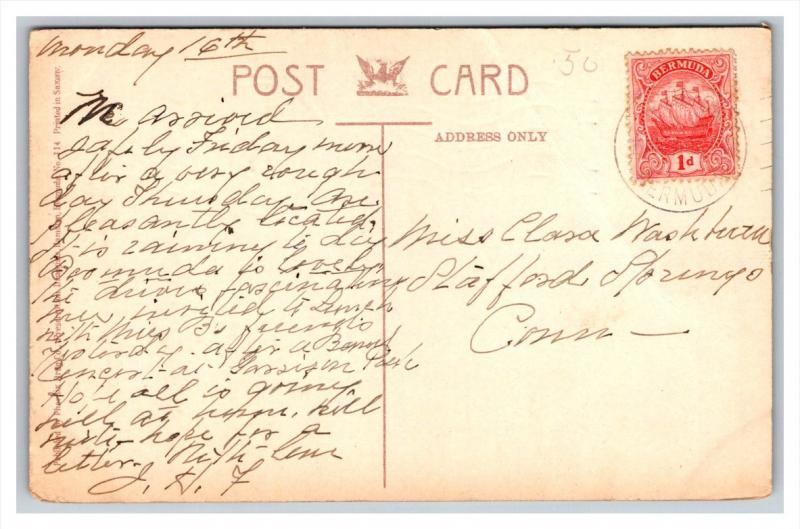 Monday 16th
POST CARD
50
BERMUDA
1d
ADDRESS ONLY
We arrived
safely Friday morn
after a very rough
day Thursday. Are
pleasantly located.
It is raining to day
Bermuda is lovely
the drives fascinating
were invited to lunch
with Miss B's friends
yesterday after a Band
Concert at Garrison Park
Hope all is going
well at home. Will
write hope for a
letter. With love
J. H. F
Miss Clara Washburn
Stafford Springs
Conn
No. 114 Printed in Saxony.